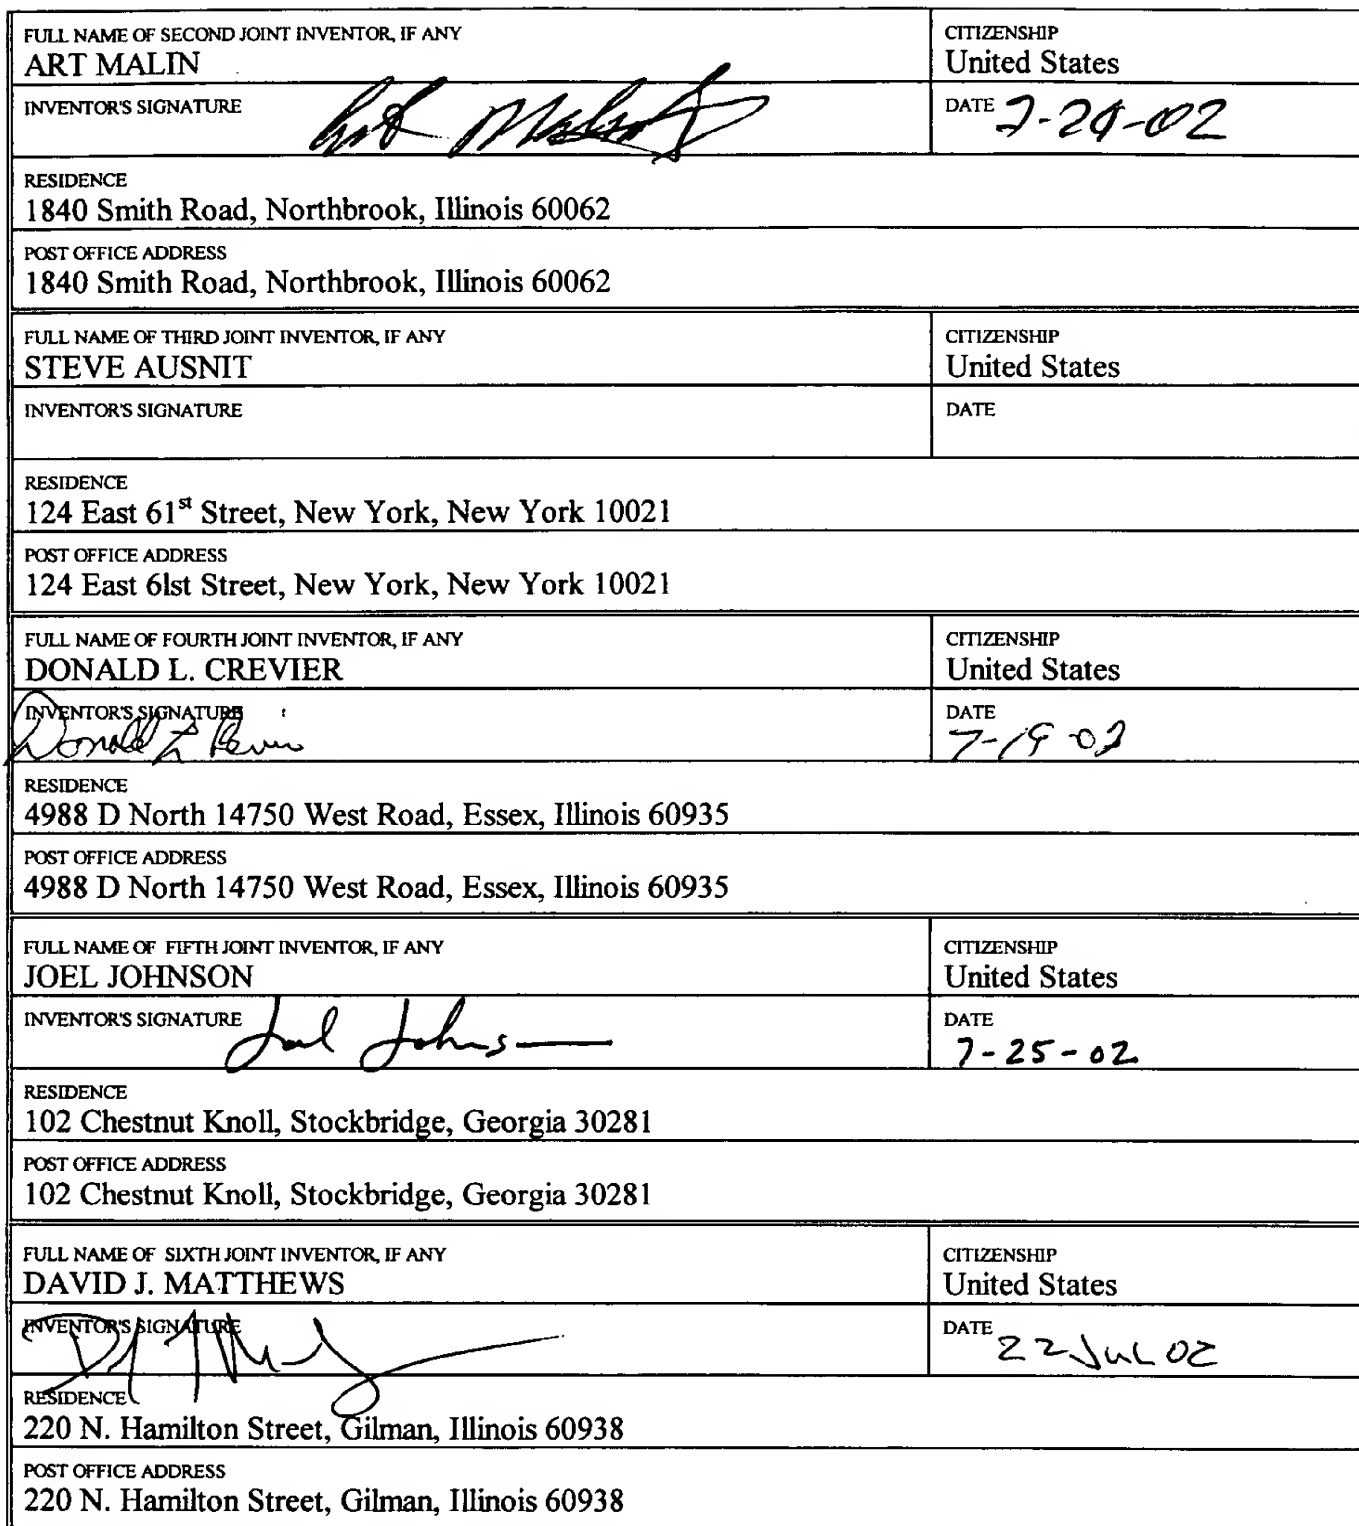 FULL NAME OF SECOND JOINT INVENTOR, IF ANY
ART MALIN
CITIZENSHIP
United States
INVENTOR'S SIGNATURE
Art Malin
DATE 7-29-02
RESIDENCE
1840 Smith Road, Northbrook, Illinois 60062
POST OFFICE ADDRESS
1840 Smith Road, Northbrook, Illinois 60062
FULL NAME OF THIRD JOINT INVENTOR, IF ANY
STEVE AUSNIT
CITIZENSHIP
United States
INVENTOR'S SIGNATURE
DATE
RESIDENCE
124 East 61st Street, New York, New York 10021
POST OFFICE ADDRESS
124 East 61st Street, New York, New York 10021
FULL NAME OF FOURTH JOINT INVENTOR, IF ANY
DONALD L. CREVIER
CITIZENSHIP
United States
INVENTOR'S SIGNATURE
Donald L Crevier
DATE
7-19-02
RESIDENCE
4988 D North 14750 West Road, Essex, Illinois 60935
POST OFFICE ADDRESS
4988 D North 14750 West Road, Essex, Illinois 60935
FULL NAME OF FIFTH JOINT INVENTOR, IF ANY
JOEL JOHNSON
CITIZENSHIP
United States
INVENTOR'S SIGNATURE
Joel Johnson
DATE
7-25-02
RESIDENCE
102 Chestnut Knoll, Stockbridge, Georgia 30281
POST OFFICE ADDRESS
102 Chestnut Knoll, Stockbridge, Georgia 30281
FULL NAME OF SIXTH JOINT INVENTOR, IF ANY
DAVID J. MATTHEWS
CITIZENSHIP
United States
INVENTOR'S SIGNATURE
DATE
22 JUL 02
RESIDENCE
220 N. Hamilton Street, Gilman, Illinois 60938
POST OFFICE ADDRESS
220 N. Hamilton Street, Gilman, Illinois 60938